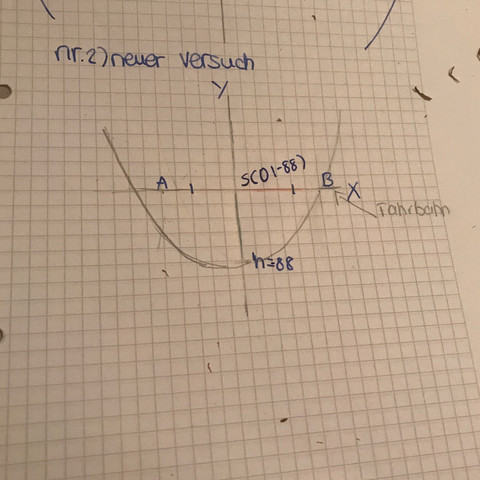 nr.2) neuer Versuch
y
S(0|-88)
A
B
X
Fahrbahn
h=88